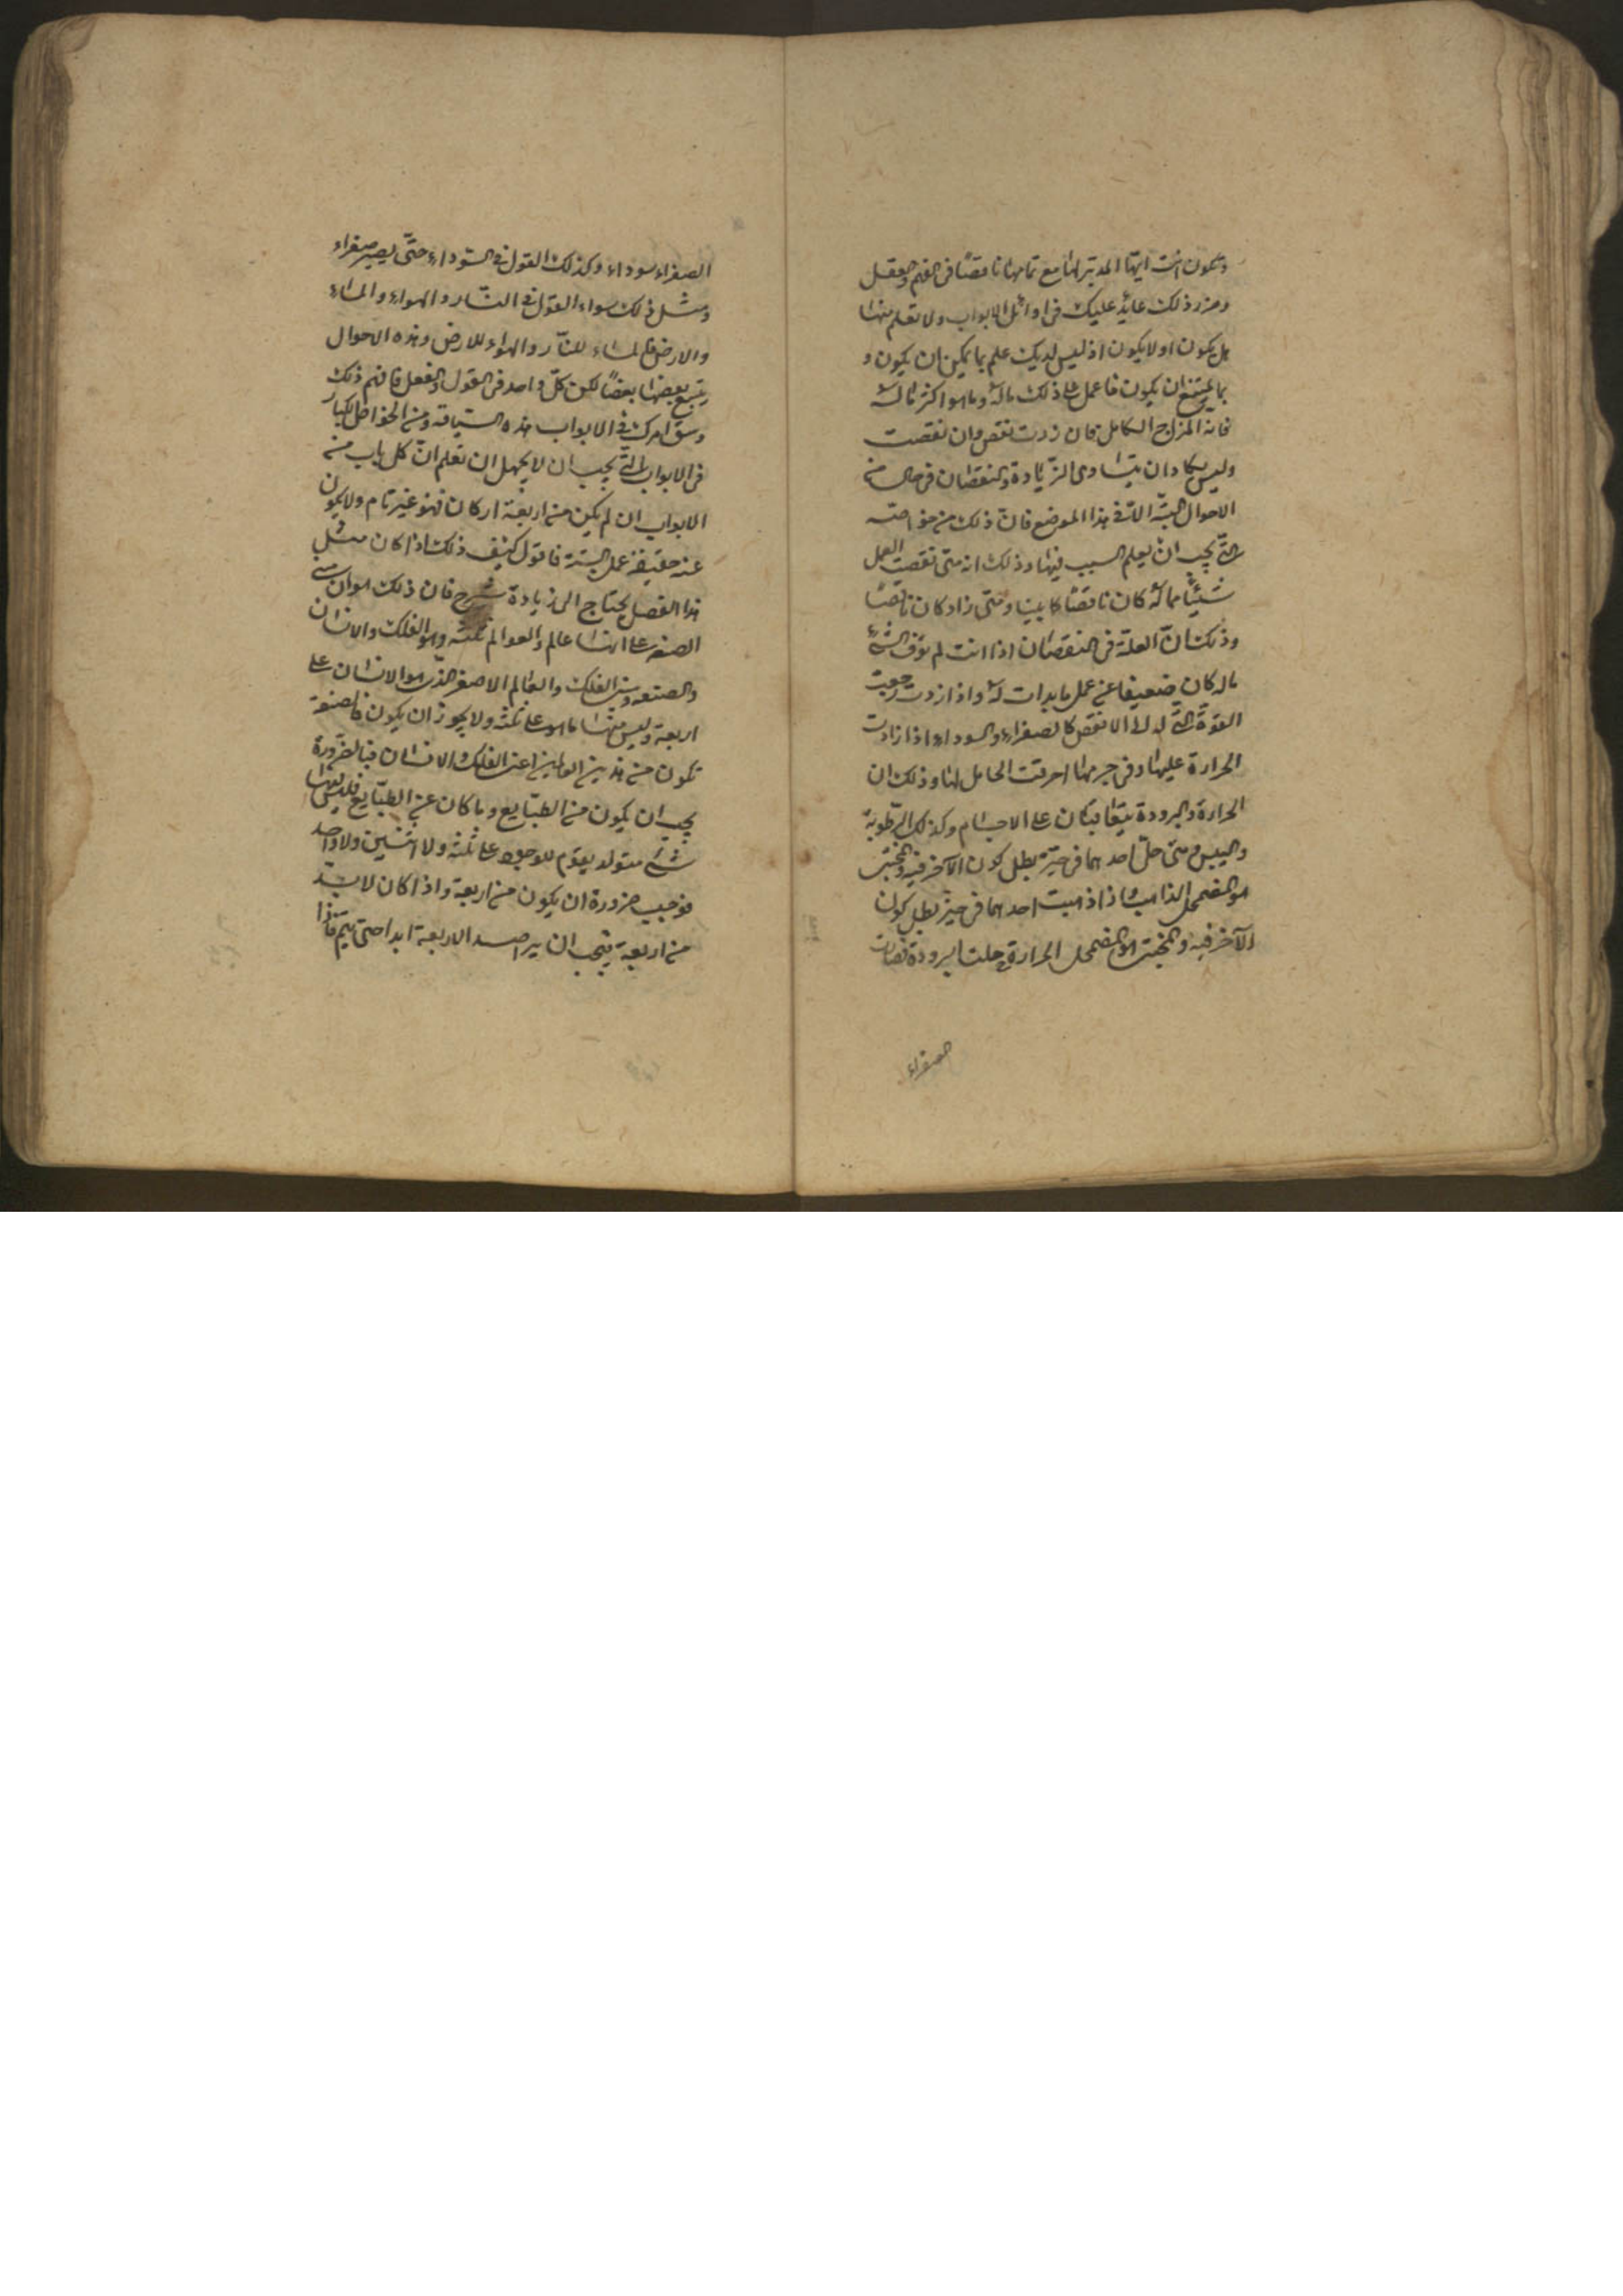 وتكون انت ايها المدبر لها مع تمامها ناقصًا فى الفهم والعقل
وضرر ذلك عائد عليك فى اوائل الابواب ولا تعلم منها
هل يكون او لا يكون اذ ليس لديك علم بما يمكن ان يكون و
بما يمتنع ان يكون فاعمل على ذلك ماله وما هو اكثر ماله
فانه المزاج الكامل فان زدت نقص وان نقصت
وليس يكاد ان يتساوى الزيادة والنقصان فى حال من
الاحوال البتة الا فى هذا الموضع فان ذلك من خواصه
التى يجب ان يعلم السبب فيها وذلك انه متى نقصت العمل
شيئًا مما له كان ناقصًا كاينا ومتى زاد كان ناقصًا
وذلك انّ العلة فى النقصان اذا انت لم توف الشئ
ماله كان ضعيفا عن عمل ما بدات له واذا ازدت رجعت
القوة التى له الى الانقص كالصفراء والسوداء اذا زادت
الحرارة عليها وفى جرمها احرقت الحامل لها وذلك ان
الحرارة والبرودة يتعاقبان على الاجسام وكذلك الرطوبة
واليبس ومتى حلّ احدهما فى حيّز بطل كون الآخر فيه والمجتنب
هو المضمحل الذاهب واذا ذهبت احدهما فى حيز بطل كون
الآخر فيه والمجتنب هو المضمحل الحرارة وحلت البرودة فصارت
الصفراء
الصفراء سوداء وكذلك القول فى السوداء حتّى يصير صفراء
ومثل ذلك سواء القول فى النّار والهواء والماء
والارض فالماء للنار والهواء للارض وهذه الاحوال
يتبع بعضها بعضًا لكن كلّ واحد فى القول والفعل فافهم ذلك
وسق امرك فى الابواب هذه السياقة ومن الخواص الكبار
فى الابواب التى يجب ان لا يجهل ان تعلم انّ كل باب من
الابواب ان لم يكن من اربعة اركان فهو غير تام ولا يكون
عنه حقيقة عمل البتة فاقول كيف ذلك اذا كان مثل
هذا الفصل يحتاج الى زيادة شرح فان ذلك هو ان
الصنعة على انها عالم والعوالم ثلثة وهو الفلك والانسان
والصنعة الفلك والعالم الاصغر الذى هو الانسان على
اربعة وليس منها ما هو على ثلثة ولا يجوز ان يكون فالصنعة
تكون من هذين العالمين اعنى الفلك والانسان فبالضرورة
يجب ان يكون من الطبايع وما كان عن الطبايع فليس فيها
شئ متولد يقوم للوجود على ثلثة ولا اثنين ولا واحد
فوجب ضرورة ان يكون من اربعة واذا كان لابدّ
من اربعة فيجب ان يرصد الاربعة ابدا حتى يتم فاذا